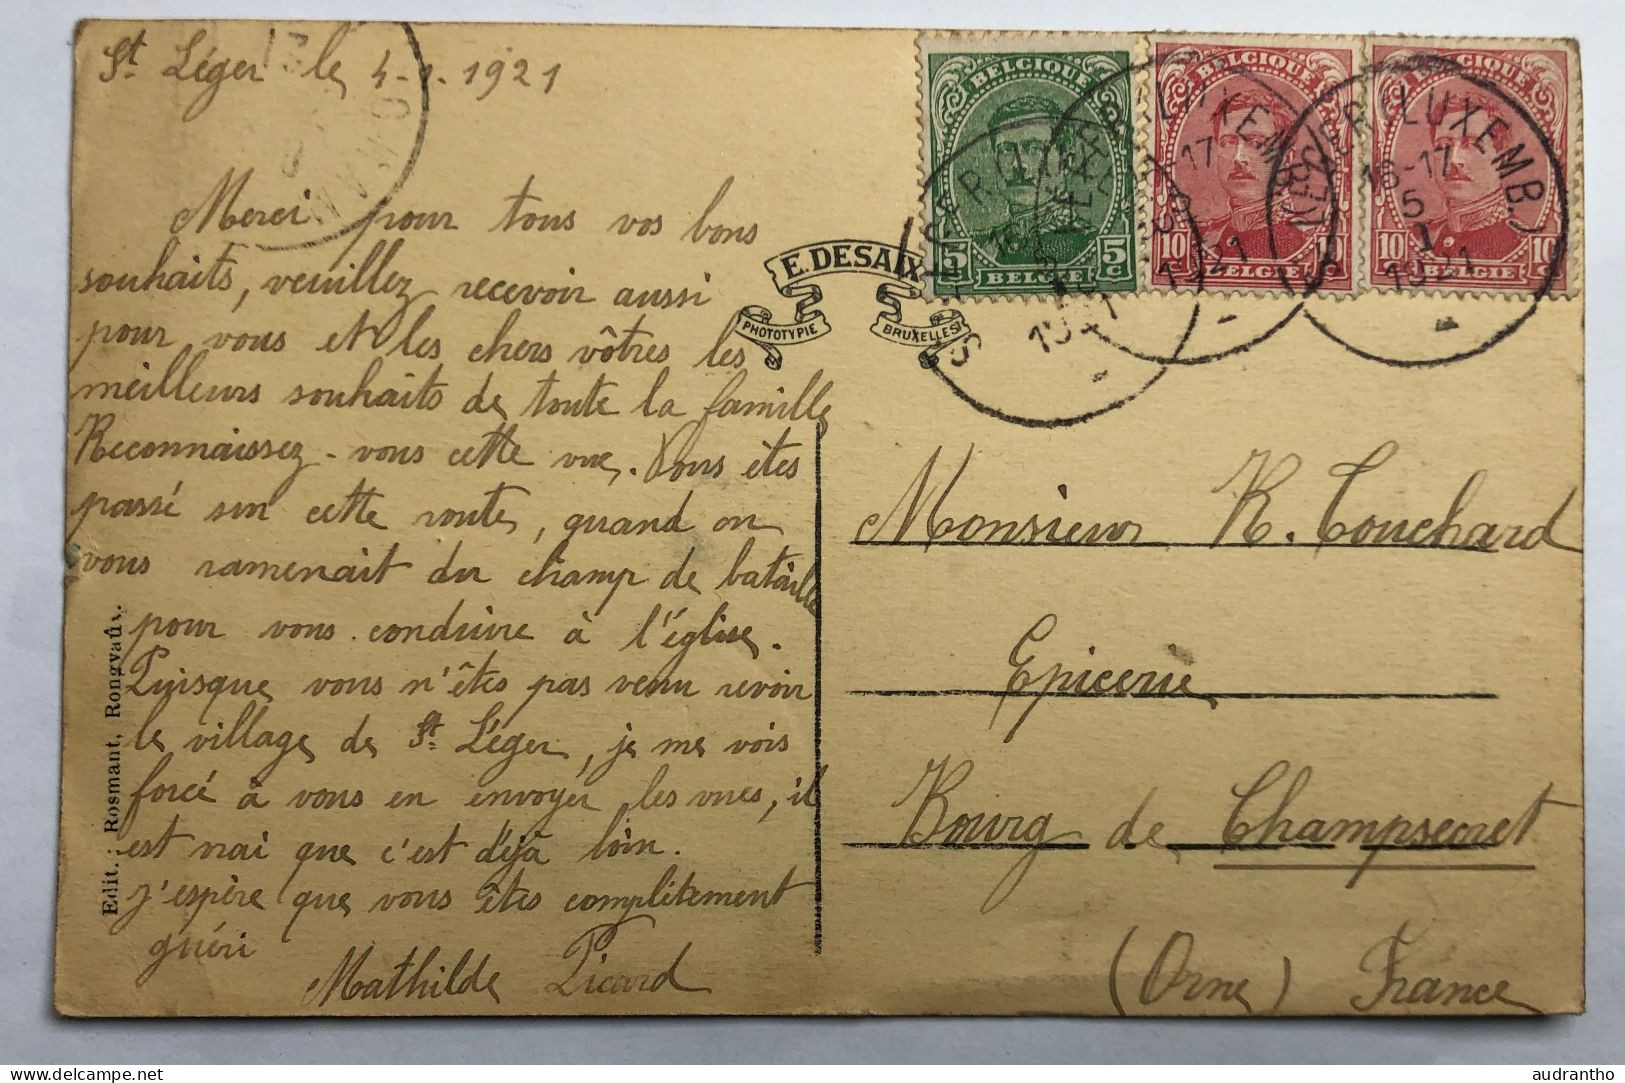 St Léger le 4-1-1921
Merci pour tous vos bons
souhaits, veuillez recevoir aussi
pour vous et les chers vôtres les
meilleurs souhaits de toute la famille
Reconnaissez-vous cette vue. Vous êtes
passé sur cette route, quand on
vous ramenait du champ de bataille
pour vous conduire à l'église.
Puisque vous n'êtes pas venu revoir
le village de St Léger, je me vois
forcé à vous en envoyer les vues, il
est vrai que c'est déjà loin.
J'espère que vous êtes complètement
guéri
Mathilde Picard
Edit.: Rosmant, Rongvaux.
E. DESAIX
PHOTOTYPIE
BRUXELLES
BELGIQUE
5 5c
BELGIE
BELGIQUE
10
BELGIE
BELGIQUE
10 10c
BELGIE
LUXEMB.)
16-17
5
1
1921
Monsieur R. Touchard
Epicerie
Bourg de Champsecret
(Orne) France
delcampe.net
audrantho